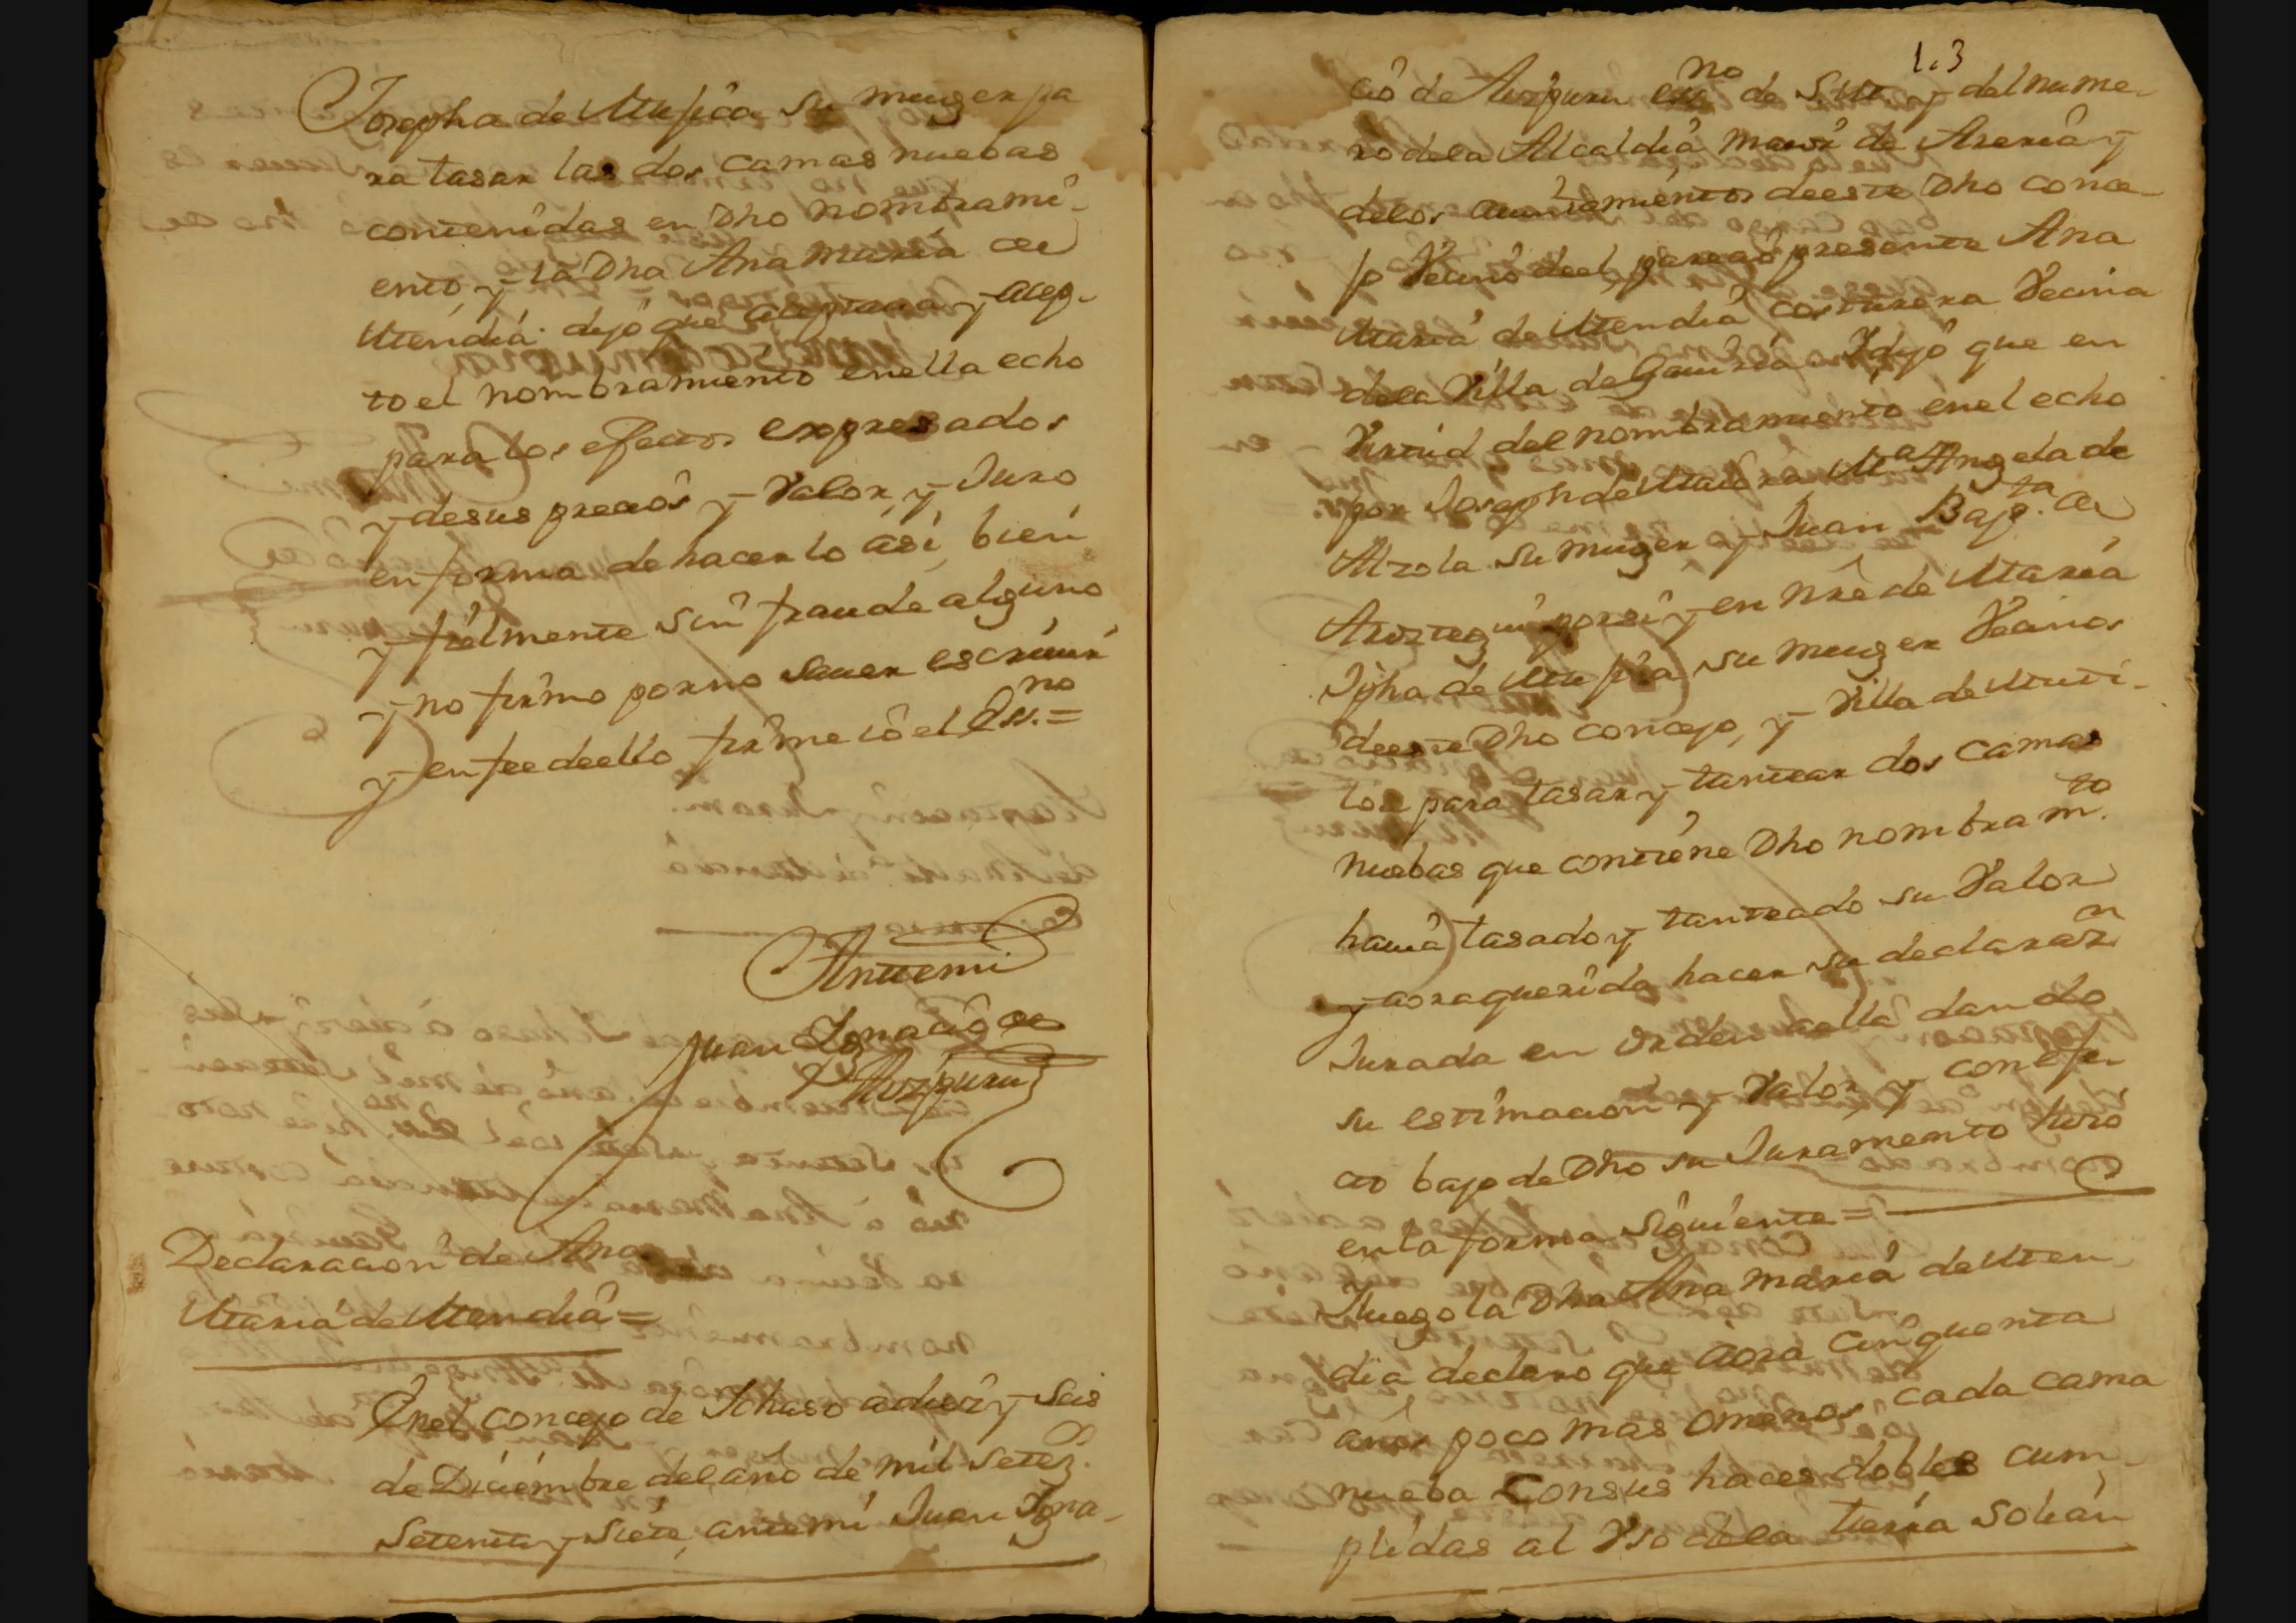 Josepha de Mufica su muger pa
ra tasar las dos camas nuebas
contenidas en Dho nombrami-
ento, y la Dha Ana Maria de
Mendia dijo que aceptaua y acep-
to el nombramiento en ella echo
para los efectos expresados
y de sus precios y Valor, y Juro
en forma de hacerlo asi, bien
y fielmente sin fraude alguno
y no firmo por no sauer escriuir
y en fee de ello firme io el Ess.no =
Antemi
Juan Ignacio de
Aizpuru
Declaracion de Ana
Maria de Mendia =
En el concejo de Ichaso a diez y seis
de Diciembre del año de mil setez.os
setenta y siete, ante mi Juan Igna-
1.3
cio de Aizpuru ess.no de S.M. y del nume-
ro de la Alcaldia maior de Areria y
de los aiuntamientos de este Dho conce-
jo Vecino de el, parecio presente Ana
Maria de Mendia costurera Vecina
de la Villa de Gauiria Y dijo que en
Virtud del nombramiento en el echo
por Joseph de Maiora M.a Angela de
Alzola su muger y Juan Bap.ta de
Aroztegui por si y en nre de Maria
Jpha de Mufica su muger Vecinos
de este Dho concejo, y Villa de Muti-
loa para tasar y tantear dos camas
nuebas que contiene Dho nombram.to
hauia tasado y tanteado su Valor
y aora queriendo hacer su declaraz.n
Jurada en orden a ella dando
su estimacion y Valor, y con efe-
cto bajo de Dho su Juramento hizo
en la forma siguiente =
Y luego la Dha Ana Maria de Men-
dia declaro que aora cinquenta
años poco mas o menos cada cama
nueba Con sus haces dobles cum-
plidas al Vso de la tierra solian